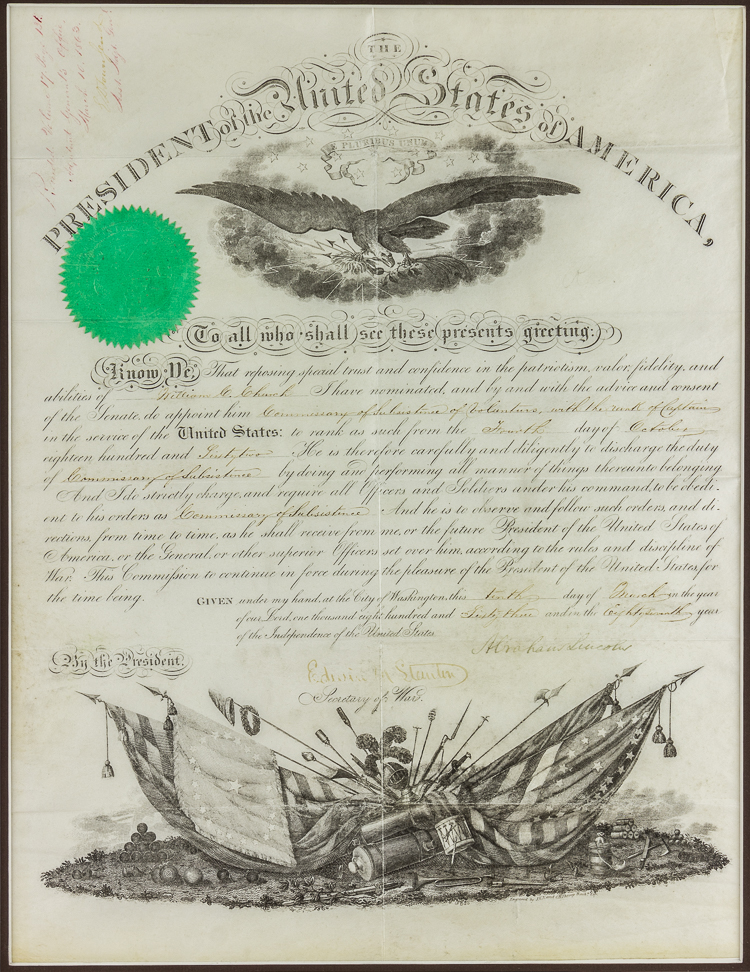 THE
PRESIDENT of the United States of AMERICA,
E PLURIBUS UNUM
To all who shall see these presents greeting:
Know Ye, That reposing special trust and confidence in the patriotism, valor, fidelity, and
abilities of William C. Church I have nominated, and by and with the advice and consent
of the Senate, do appoint him Commissary of Subsistence of Volunteers, with the rank of Captain
in the service of the United States: to rank as such from the Fourth day of October
eighteen hundred and Sixty two He is therefore carefully and diligently to discharge the duty
of Commissary of Subsistence by doing and performing all manner of things thereunto belonging
And I do strictly charge, and require all Officers and Soldiers under his command, to be obedi-
ent to his orders as Commissary of Subsistence And he is to observe and follow such orders, and di-
rections, from time to time, as he shall receive from me, or the future President of the United States of
America, or the General, or other superior Officers set over him, according to the rules and discipline of
War. This Commission to continue in force during the pleasure of the President of the United States, for
the time being.
GIVEN under my hand, at the City of Washington, this tenth day of March in the year
of our Lord, one thousand eight hundred and Sixty three and in the Eighty seventh year
of the Independence of the United States.
Abraham Lincoln
By the President.
Edwin M Stanton
Secretary of War.